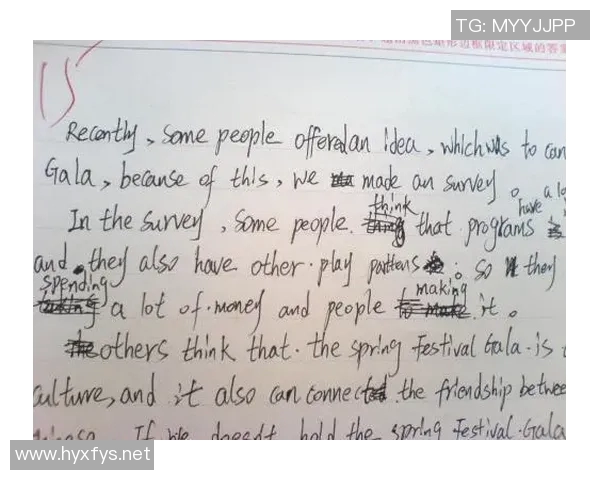 TG: MYYJJPP
框限定区域的答案
15
Recently, some people offered an idea, which was to can
Gala, because of this, we made an survey. a lo
In the survey, some people think that programs have
and they also have other play pattens. so they
spending a lot of money and people making it.
others think that the spring Festival Gala is
culture, and it also can connect the friendship betwee
If we doesn't hold the spring Festival Gala
www.hyxfys.net